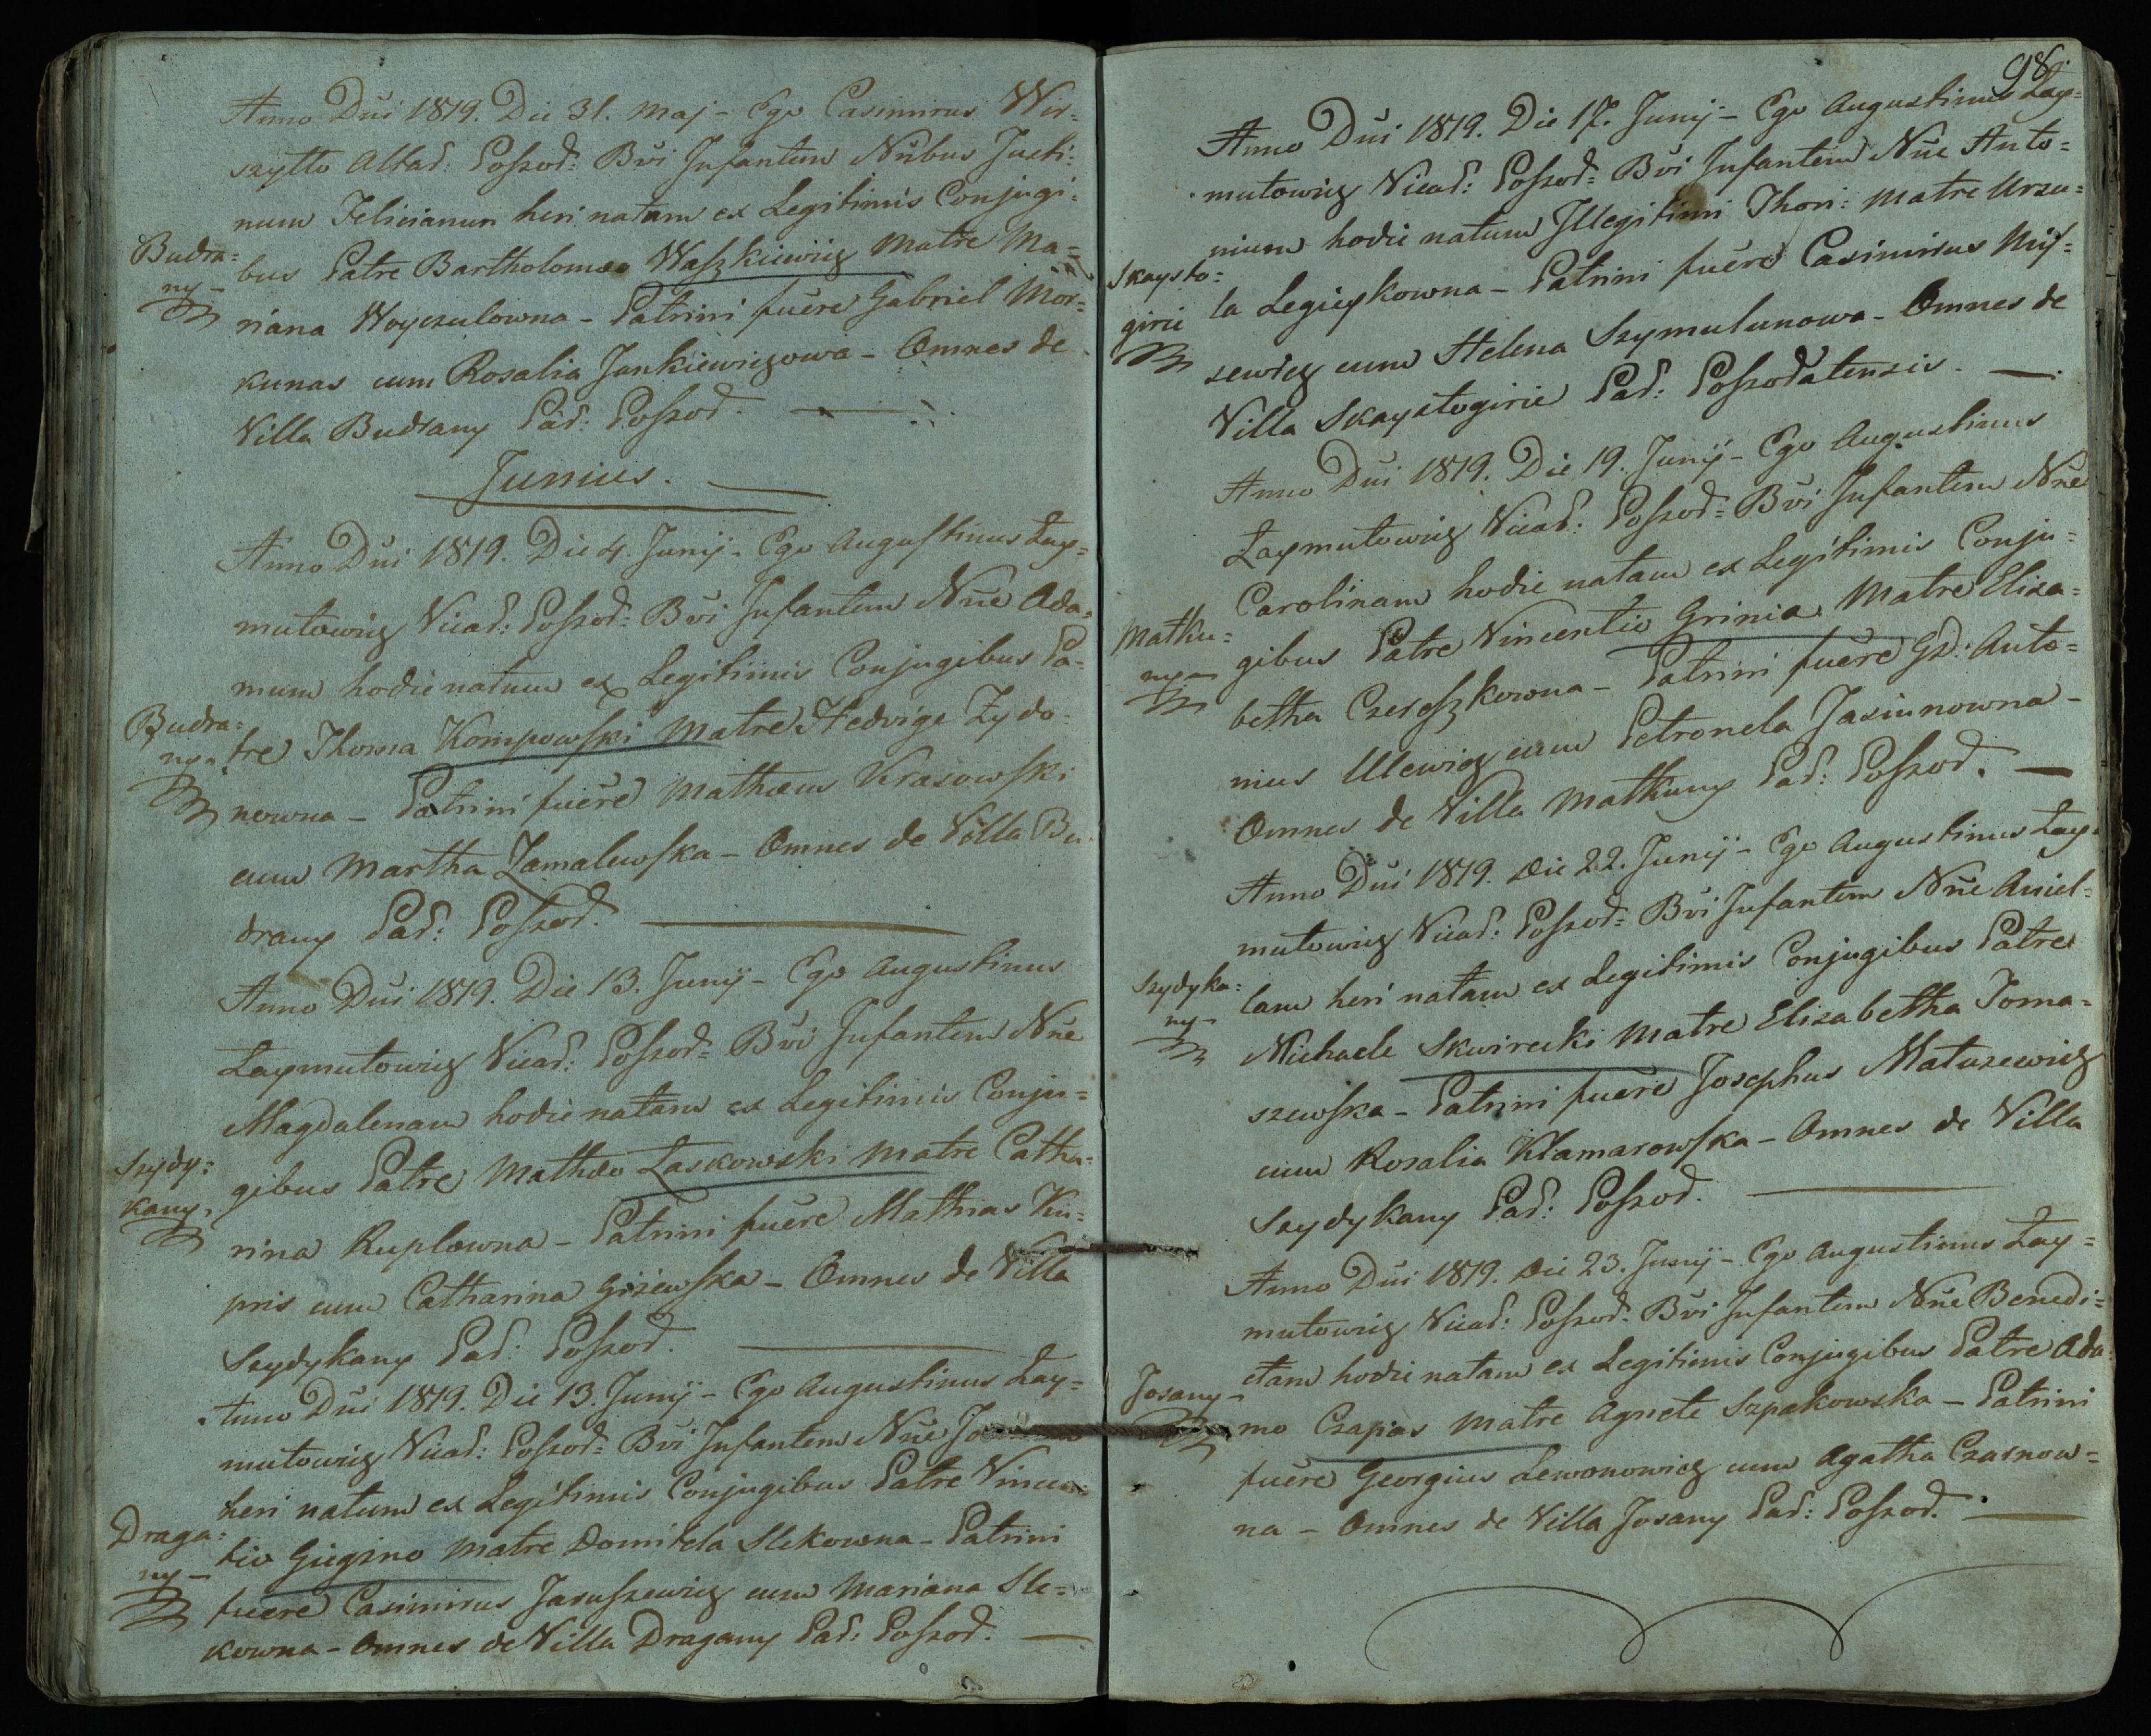 Anno Dni 1819. Die 31. Maj - Ego Casimirus Wir=
szytto Altad: Poszod: Bvi Infantem Nnbus Justi=
num Felicianum heri natum ex Legitimis Conjugi=
Budra=
ny -
bus Patre Bartholomæo Waszkiewicz Matre Ma=
riana Woyczulowna - Patrini fuere Gabriel Mor=
kunas cum Rosalia Jankiewiczowa - Omnes de
Villa Budrany Par: Poszod.
Junius.
Anno Dni 1819. Die 4. Junij - Ego Augustinus Łay=
mutowicz Vicar: Poszod: Bvi Infantem Nne Ada=
mum hodie natum ex Legitimis Conjugibus Pa=
Budra=
ny -
tre Thoma Kompowski Matre Hedvige Zydo=
nowna - Patrini fuere Mathæus Krasowski
cum Martha Zamalewska - Omnes de Villa Bu=
drany Par: Poszod.
Anno Dni 1819. Die 13. Junij - Ego Augustinus
Łaymutowicz Vicar: Poszod: Bvi Infantem Nne
Magdalenam hodie natam ex Legitimis Conju=
Szydy=
kany.
gibus Patre Mathæo Laskowski Matre Catha=
rina Ruplowna - Patrini fuere Mathias Ku=
pris cum Catharina Giżewska - Omnes de Villa
Szydykany Par: Poszod.
Anno Dni 1819. Die 13. Junij - Ego Augustinus Łay=
mutowicz Vicar: Poszod: Bvi Infantem Nne
heri natum ex Legitimis Conjugibus Patre Vincen=
Draga=
ny -
tio Giegzno Matre Domitela Slekowna - Patrini
fuere Casimirus Jaruszewicz cum Mariana Sle=
kowna - Omnes de Villa Dragany Par: Poszod.
98.
Anno Dni 1819. Die 17. Junij - Ego Augustinus Łay=
mutowicz Vicar: Poszod: Bvi Infantem Nne Anto=
nium hodie natum Illegitimi Thori: Matre Urszu=
Skaysto=
girie
la Legieykowna - Patrini fuere Casimirus Mis=
zewicz cum Helena Szymulunowa - Omnes de
Villa Skaystogirie Par: Poszodatensis.
Anno Dni 1819. Die 19. Junij - Ego Augustinus
Łaymutowicz Vicar: Poszod: Bvi Infantem Nne
Carolinam hodie natam ex Legitimis Conju=
Matku=
ny -
gibus Patre Vincentio Grinia Matre Eliza=
betha Czereszkowna - Patrini fuere Gd: Anto=
nius Ulewicz cum Petronela Jasiunowna -
Omnes de Villa Matkuny Par: Poszod.
Anno Dni 1819. Die 22. Junij - Ego Augustinus Łay=
mutowicz Vicar: Poszod: Bvi Infantem Nne Aniel=
Szydyka=
ny -
lam heri natam ex Legitimis Conjugibus Patre
Michaele Skwirecki Matre Elizabetha Toma=
szewska - Patrini fuere Josephus Matuzewicz
cum Rosalia Klamarowska - Omnes de Villa
Szydykany Par: Poszod.
Anno Dni 1819. Die 23. Junij - Ego Augustinus Łay=
mutowicz Vicar: Poszod: Bvi Infantem Nne Benedi=
ctam hodie natam ex Legitimis Conjugibus Patre Ada=
Josany -
mo Czapas Matre Agnete Szpakowska - Patrini
fuere Georgius Lewonowicz cum Agatha Czarnow=
na - Omnes de Villa Josany Par: Poszod.